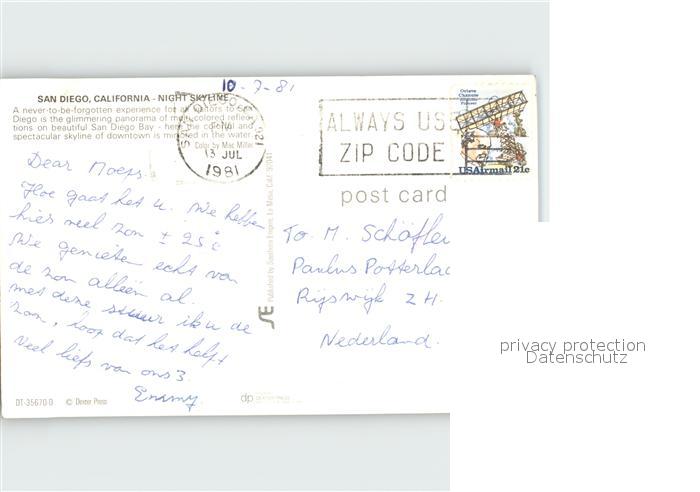 10-7-81
SAN DIEGO, CALIFORNIA - NIGHT SKYLINE
A never-to-be-forgotten experience for all visitors to San
Diego is the glimmering panorama of multi-colored reflec-
tions on beautiful San Diego Bay - here the colorful and
spectacular skyline of downtown is mirrored in the water.
Color by Mac Miller
SAN DIEGO 921
PM
13 JUL
1981
ALWAYS USE
ZIP CODE
Octave
Chanute
Aviation
Pioneer
USAirmail 21c
post card
Dear Moeps.
Hoe gaat het u. We hebben
hier veel zon ± 25°c
We genieten echt van
de zon alleen al.
met deze stuur ik u de
zon, hoop dat het helpt
veel liefs van ons 3.
Emmy.
To. M. Schöfle
Paulus Potterla
Rijswijk Z H.
Nederland.
DT-35670-D © Dexter Press
dp
privacy protection
Datenschutz